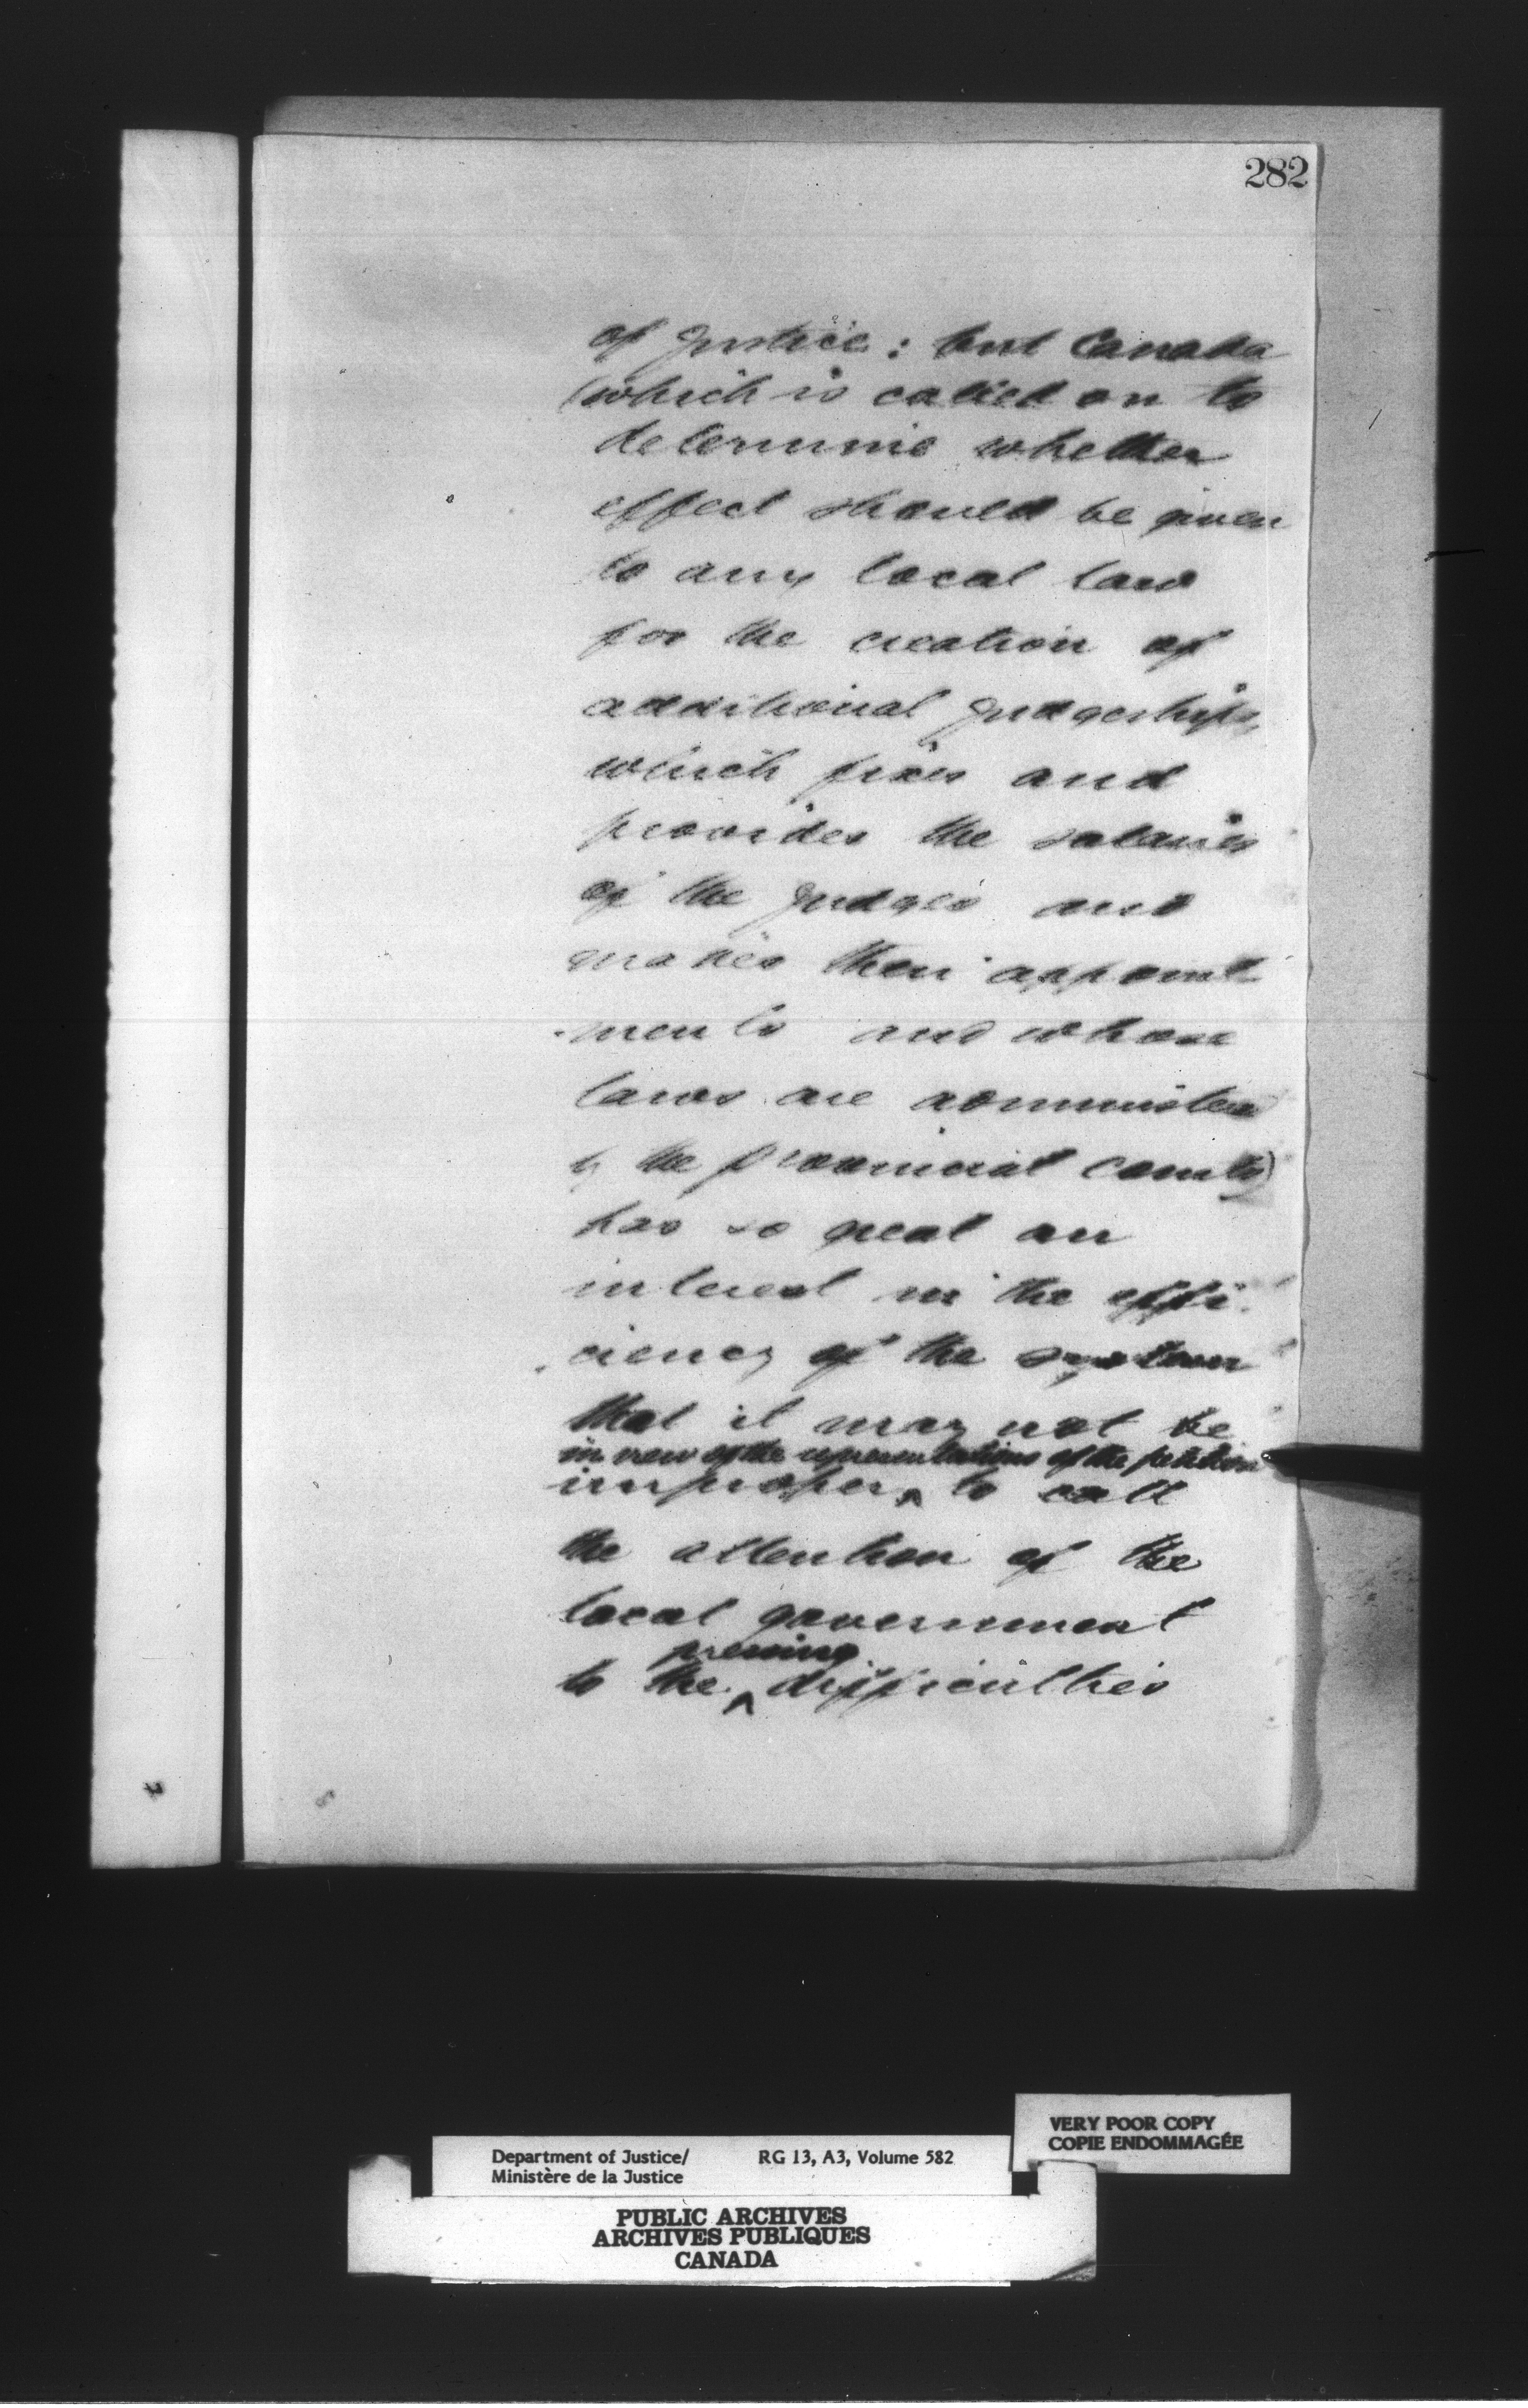 282
of Justice: but Canada
(which is called on to
determine whether
effect should be given
to any local law
for the creation of
additional Judgeships,
which fixes and
provides the salaries
of the Judges and
makes their appoint-
-ments and whose
laws are administered
by the Provincial Courts)
has so great an
interest in the effi-
-ciency of the system
that it may not be
in view of the representations of the petition
improper ^ to call
the attention of the
local government
pressing
to the ^ difficulties
VERY POOR COPY
COPIE ENDOMMAGÉE
Department of Justice/ RG 13, A3, Volume 582
Ministère de la Justice
PUBLIC ARCHIVES
ARCHIVES PUBLIQUES
CANADA